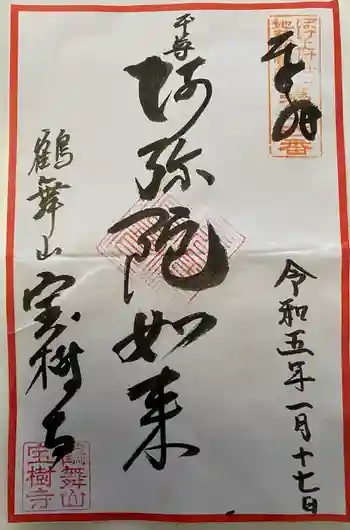 奉拝
本尊
阿弥陀如来
鶴舞山
宝樹寺
令和五年一月十七日
鶴舞山
宝樹寺